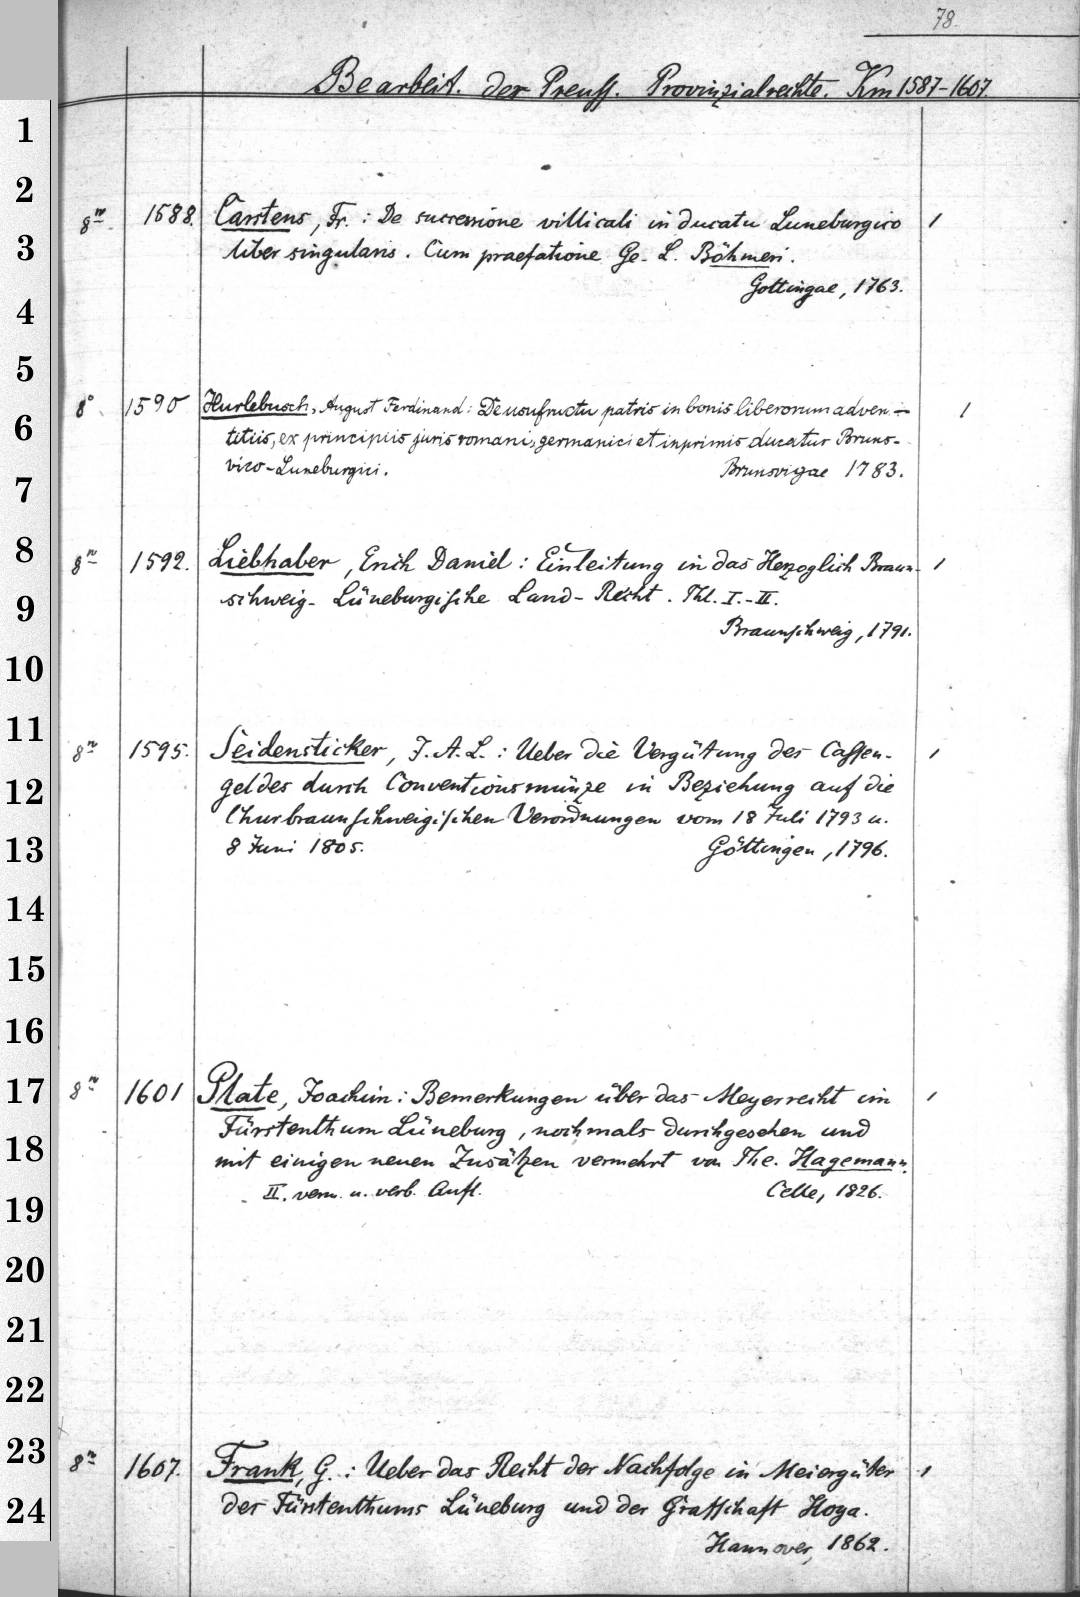 78.
Bearbeit. der Preuss. Provinzialrechte. Km 1587-1607.
1
2
8º 1588. Carstens, Fr. : De successione villicali in ducatu Luneburgico 1
3
liber singularis. Cum praefatione Ge. L. Böhmeri.
Gottingae, 1763.
4
5
8° 1590 Hurlebusch, August Ferdinand: De usufructu patris in bonis liberorum adven- 1
6
titiis, ex principiis juris romani, germanici et inprimis ducatur Bruns-
vico-Luneburgici. Brunsvigae 1783.
7
8
8º 1592. Liebhaber, Erich Daniel : Einleitung in das Herzoglich Braun- 1
9
schweig-Lüneburgische Land-Recht. Thl. I.-II.
Braunschweig, 1791.
10
11
8º 1595. Seidensticker, J. A. L. : Ueber die Vergütung des Cassen- 1
12
geldes durch Conventionsmünze in Beziehung auf die
Churbraunschweigischen Verordnungen vom 18 Juli 1793 u.
13
8 Juni 1805. Göttingen, 1796.
14
15
16
17
8º 1601 Plate, Joachim : Bemerkungen über das Meyerrecht im 1
Fürstenthum Lüneburg, nochmals durchgesehen und
18
mit einigen neuen Zusätzen vermehrt von The. Hagemann.
II. verm. u. verb. Aufl. Celle, 1826.
19
20
21
22
23
8º 1607. Frank, G. : Ueber das Recht der Nachfolge in Meiergüter 1
24
des Fürstenthums Lüneburg und der Grafschaft Hoya.
Hannover, 1862.